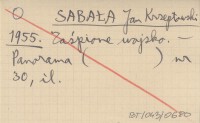 O SABAŁA Jan Krzeptowski
1955. Zaśpione wojsko. –
Panorama ( ) nr
30, il.
BT/043/0680